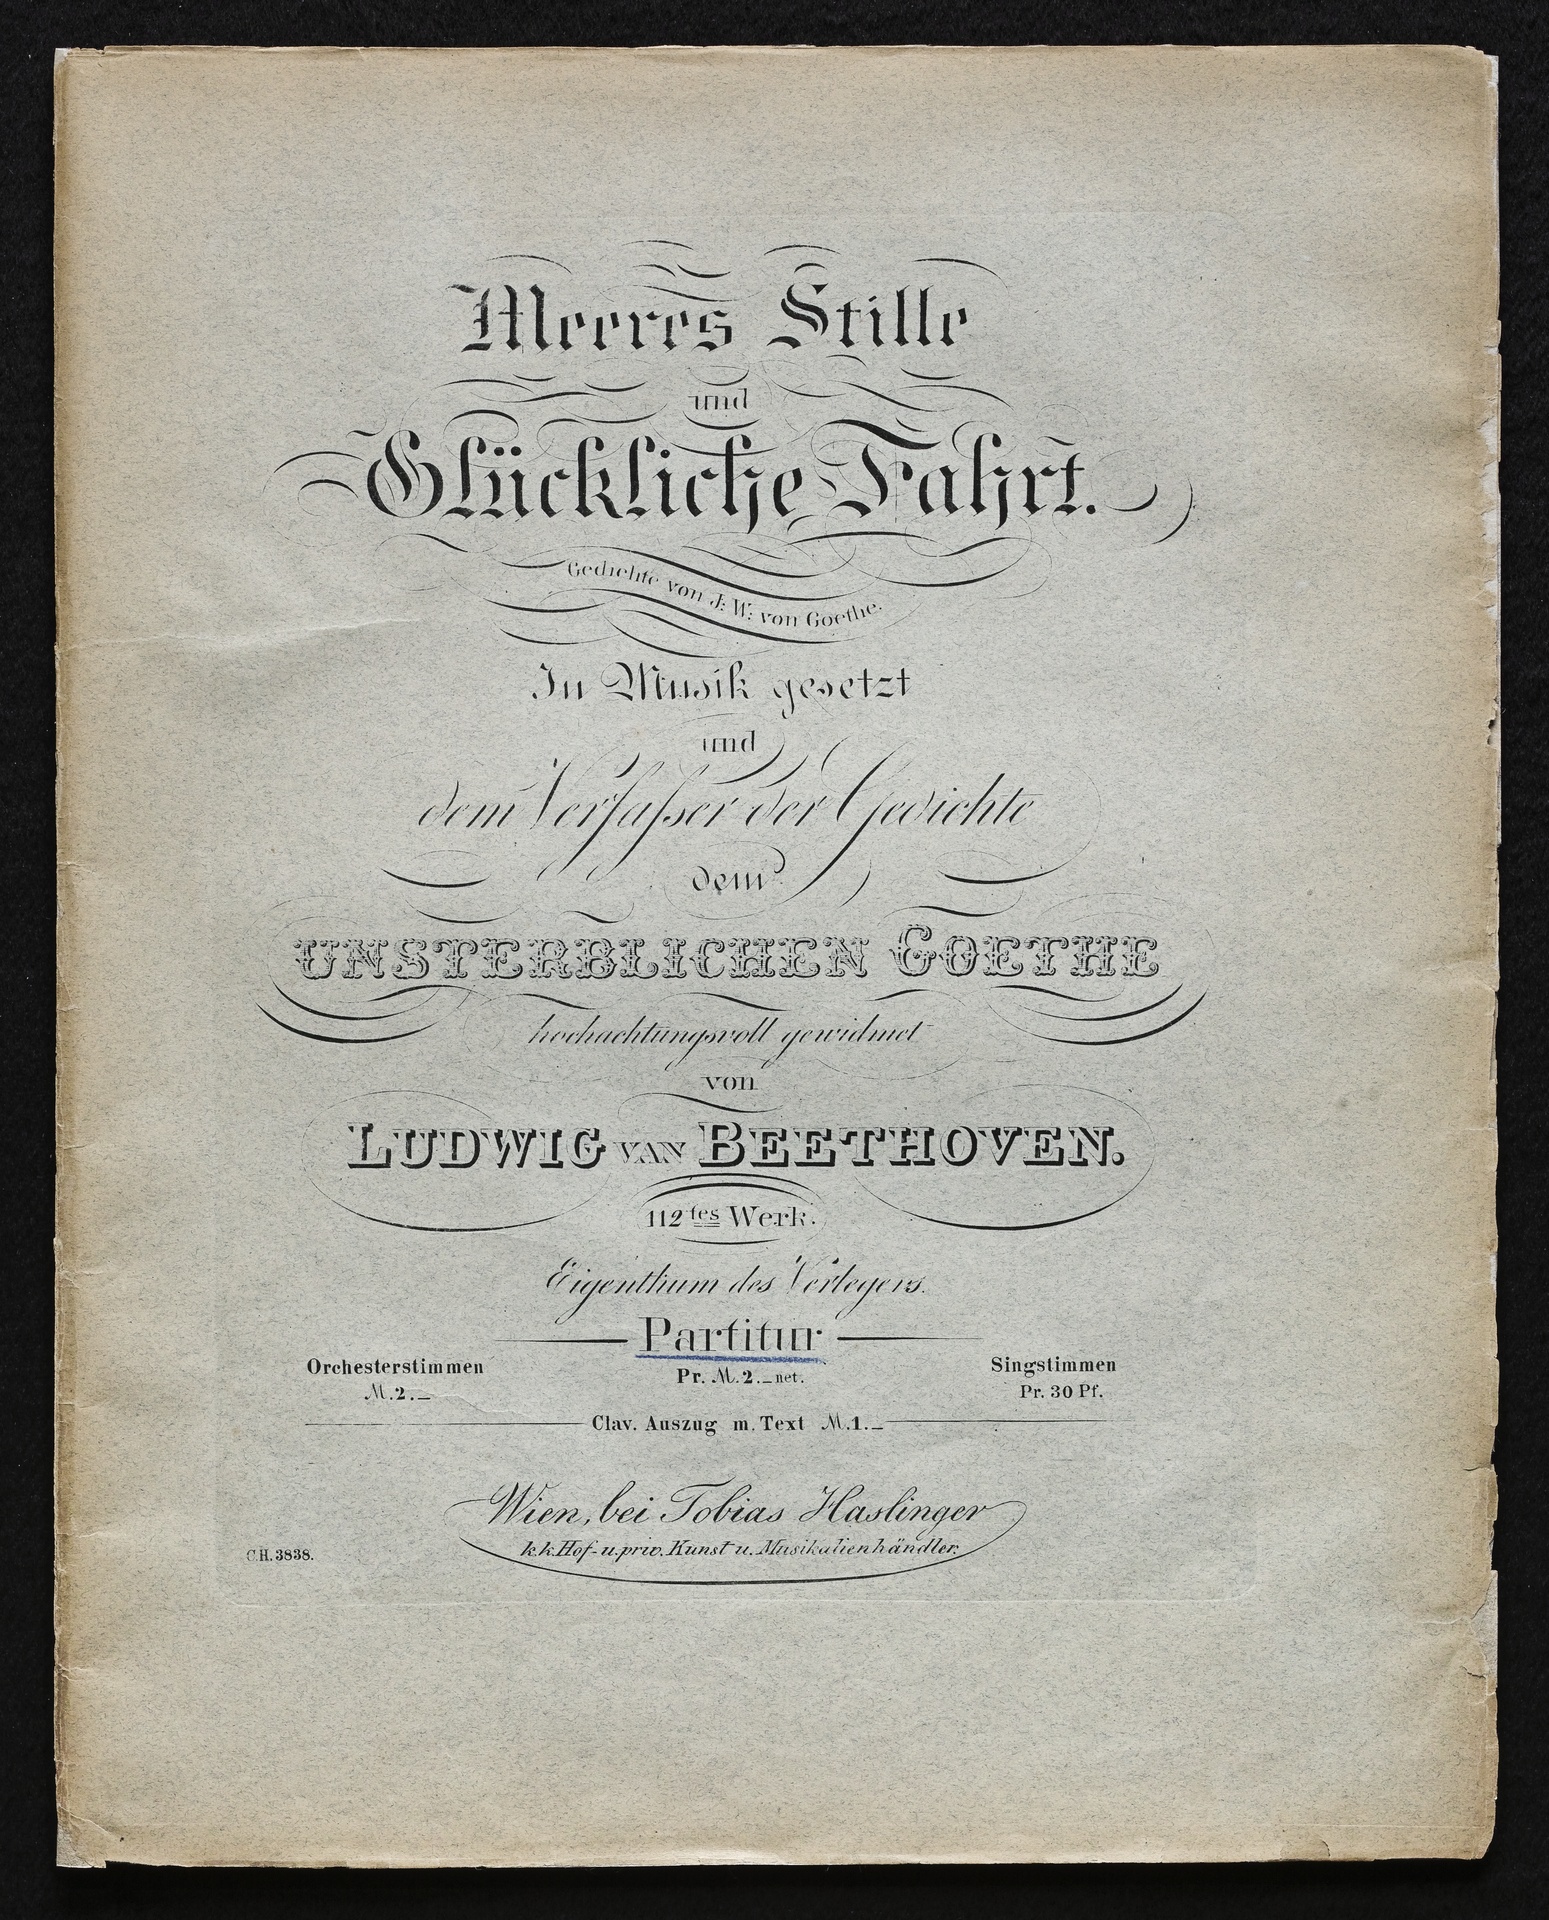 Meeres Stille
und
Glückliche Fahrt.
Gedichte von J: W: von Goethe.
In Musik gesetzt
und
dem Verfaſser der Gedichte
dem
UNSTERBLICHEN GOETHE
hochachtungsvoll gewidmet
von
LUDWIG VAN BEETHOVEN.
112tes Werk.
Eigenthum des Verlegers.
Partitur
Pr. M. 2._net.
Orchesterstimmen
M. 2._
Singstimmen
Pr. 30 Pf.
Clav. Auszug m. Text M. 1._
Wien, bei Tobias Haslinger
k. k. Hof- u. priv. Kunst u. Musikalienhändler.
C.H. 3838.